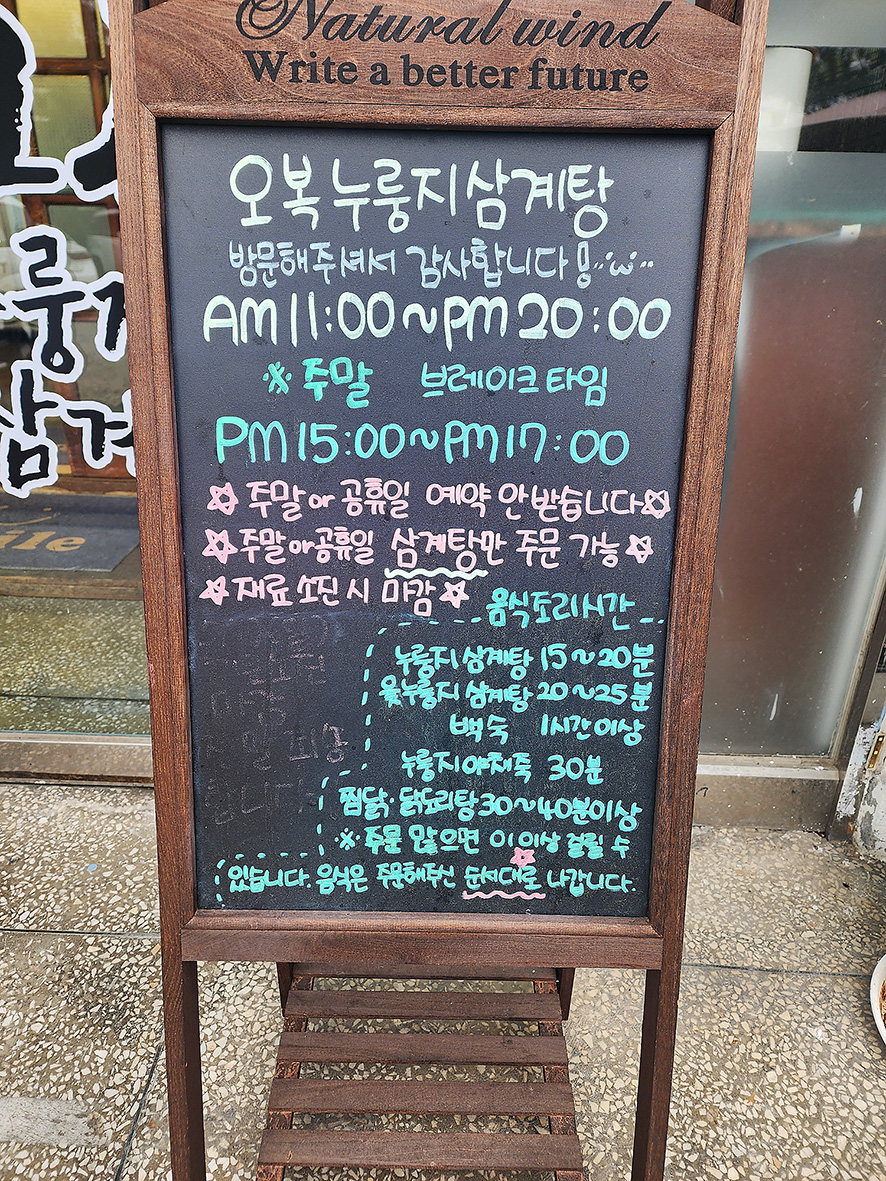 Natural wind
Write a better future
오복누룽지삼계탕
방문해주셔서 감사합니다!
AM 11:00~PM 20:00
※주말 브레이크타임
PM 15:00~PM 17:00
☆주말or공휴일 예약 안받습니다☆
☆주말or공휴일 삼계탕만 주문 가능☆
☆재료소진시 마감☆
음식조리시간
누룽지삼계탕 15~20분
옻누룽지삼계탕 20~25분
백숙 1시간이상
누룽지야채죽 30분
찜닭·닭도리탕 30~40분이상
※주문 많으면 이이상 걸릴 수
있습니다. 음식은 주문해주신 순서대로 나갑니다.